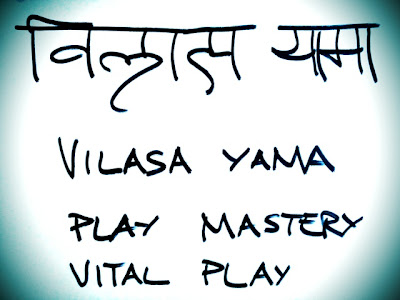 विलास यामा
VILASA YAMA
PLAY MASTERY
VITAL PLAY